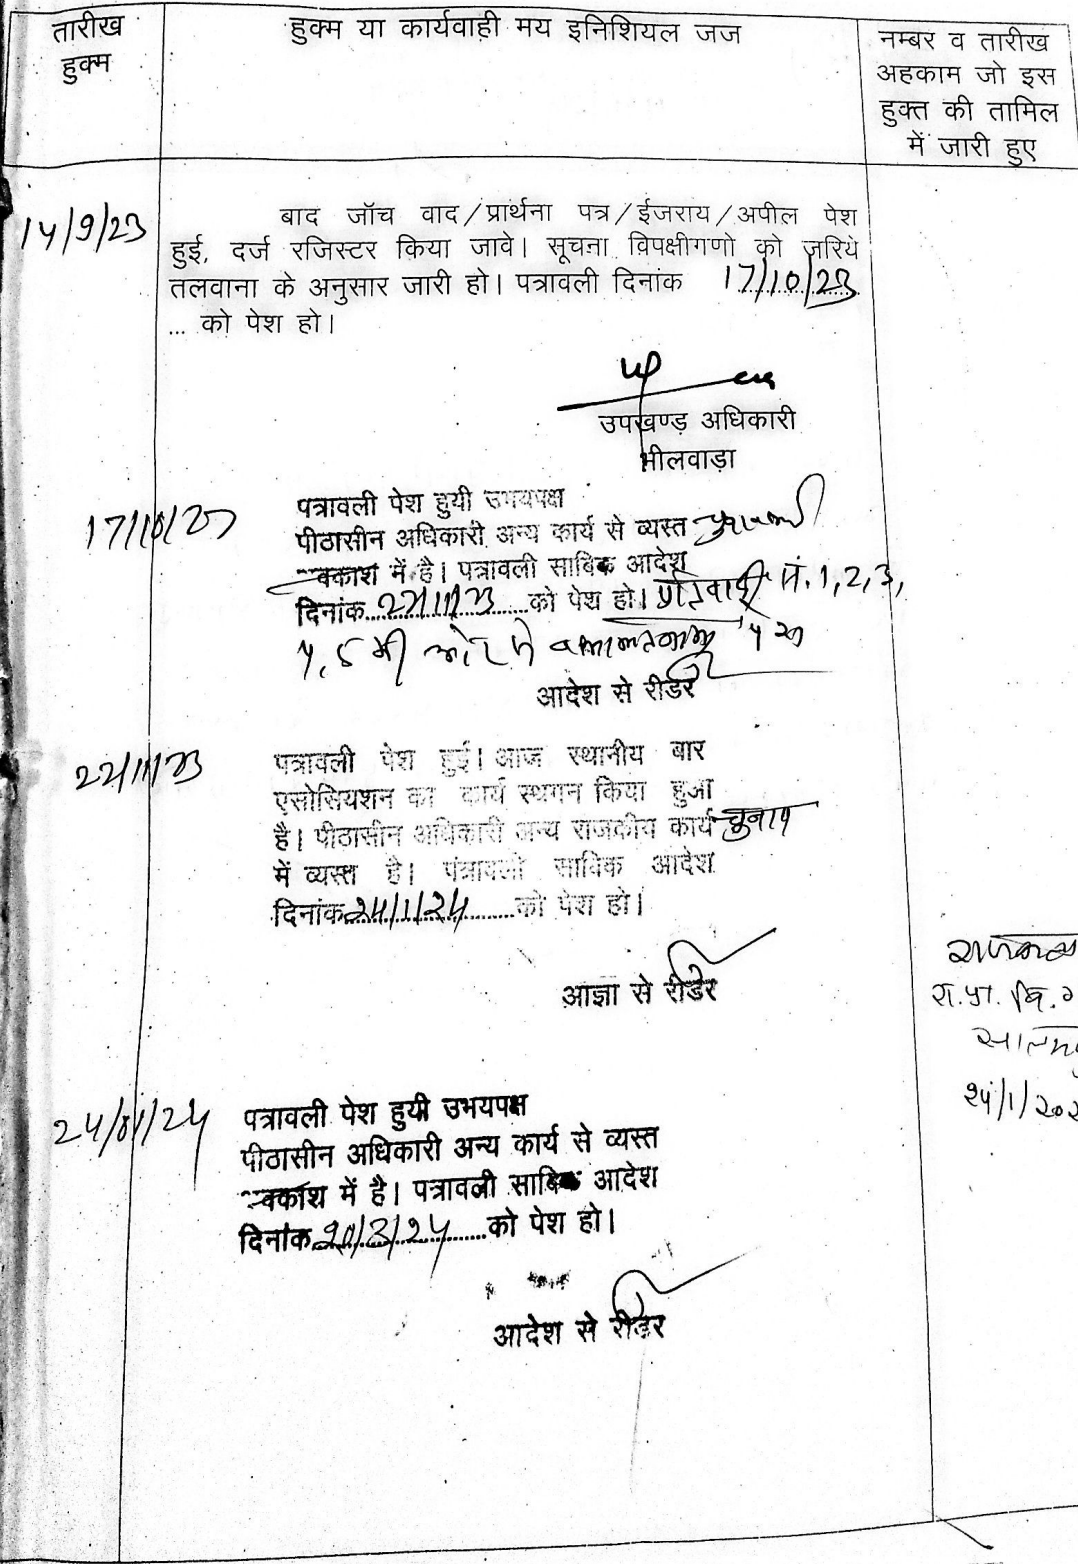 तारीख
हुक्म
हुक्म या कार्यवाही मय इनिशियल जज
नम्बर व तारीख
अहकाम जो इस
हुक्त की तामिल
में जारी हुए
14/9/23
बाद जॉच वाद/प्रार्थना पत्र/ईजराय/अपील पेश
हुई, दर्ज रजिस्टर किया जावे। सूचना विपक्षीगणो को जरिये
तलवाना के अनुसार जारी हो। पत्रावली दिनांक 17/10/23
... को पेश हो।
उपखण्ड अधिकारी
भीलवाड़ा
17/10/23
पत्रावली पेश हुयी उभयपक्ष
पीठासीन अधिकारी अन्य कार्य से व्यस्त
वकाश में है। पत्रावली साबिक आदेश
दिनांक 22/11/23 को पेश हो। प्रतिवादी सं. 1, 2, 3,
4, 5 की ओर से वकालतनामा पेश
आदेश से रीडर
22/11/23
पत्रावली पेश हुई। आज स्थानीय बार
एसोसियशन का कार्य स्थगन किया हुआ
है। पीठासीन अधिकारी अन्य राजकीय कार्य चुनाव
में व्यस्त है। पंत्रावली साविक आदेश
दिनांक 24/1/24 को पेश हो।
आज्ञा से रीडर
24/01/24
पत्रावली पेश हुयी उभयपक्ष
पीठासीन अधिकारी अन्य कार्य से व्यस्त
वकाश में है। पत्रावली साबिक आदेश
दिनांक 20/3/24 को पेश हो।
आदेश से रीडर